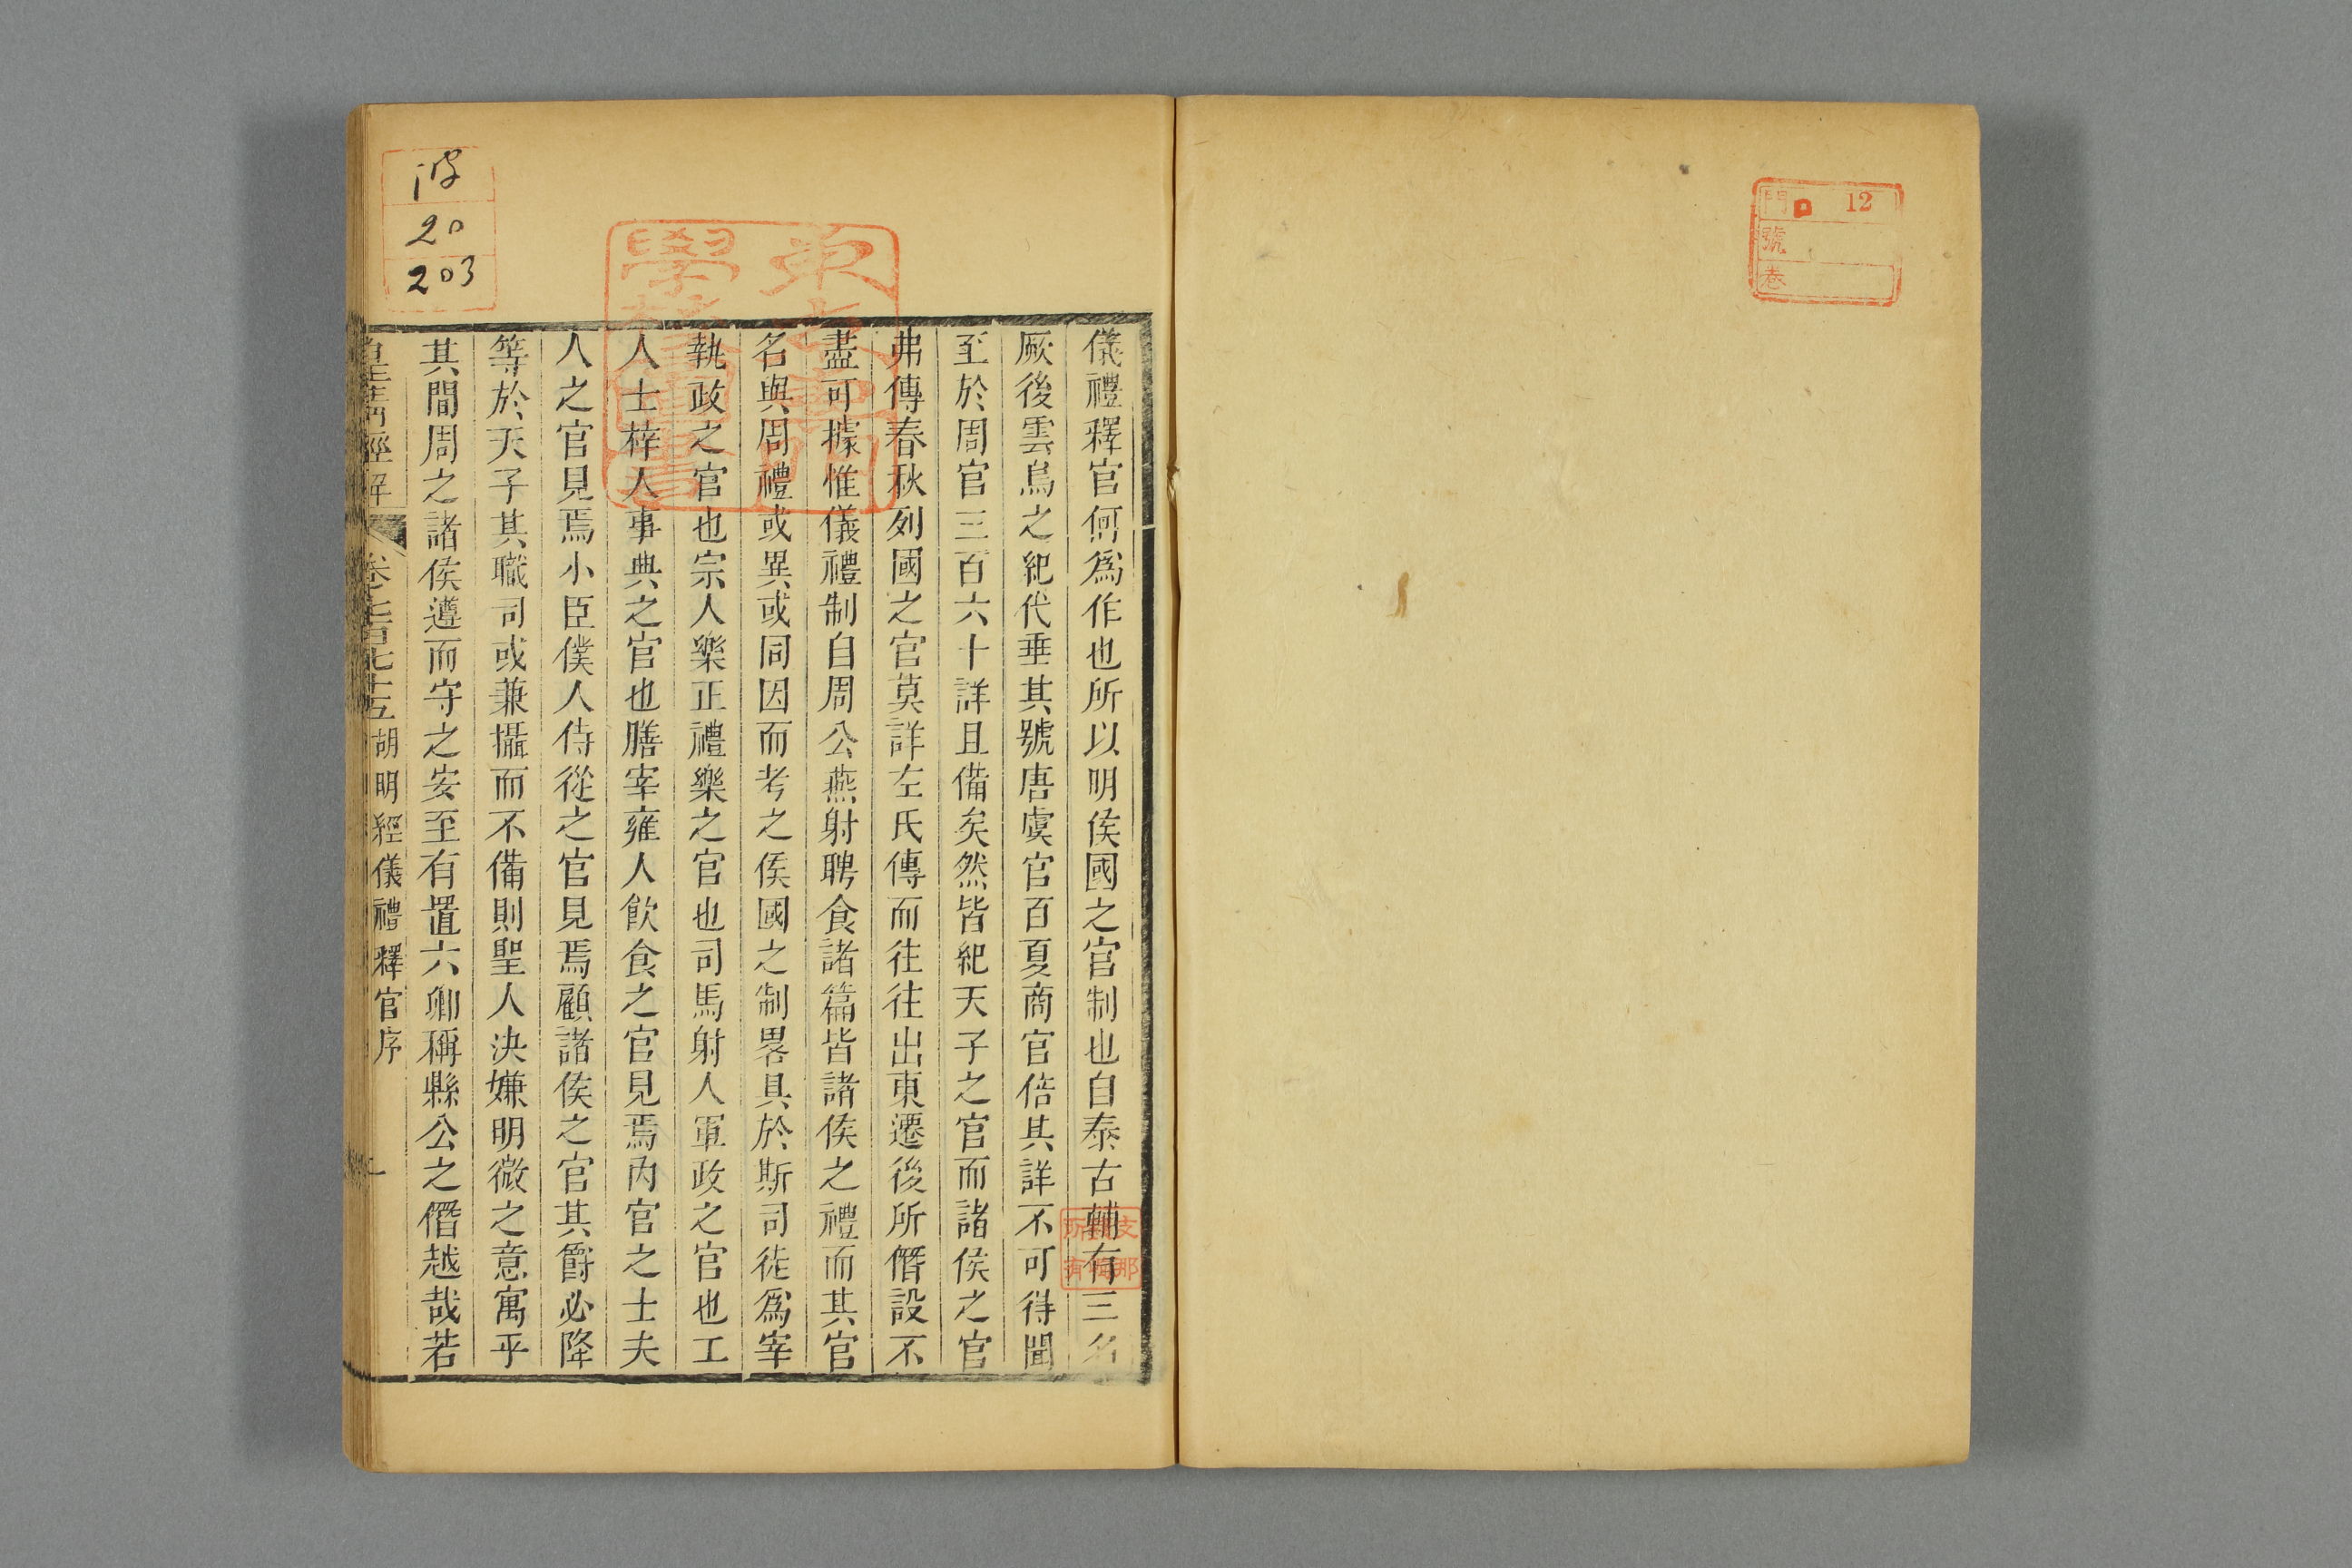 門 12
號
卷
儀禮釋官何爲作也所以明侯國之官制也自泰古輔有三名
厥後雲鳥之紀代垂其號唐虞官百夏商官倍其詳不可得聞
至於周官三百六十詳且備矣然皆紀天子之官而諸侯之官
弗傳春秋列國之官莫詳左氏傳而往往出東遷後所僭設不
盡可據惟儀禮制自周公燕射聘食諸篇皆諸侯之禮而其官
名與周禮或異或同因而考之侯國之制畧具於斯司徒爲宰
執政之官也宗人樂正禮樂之官也司馬射人軍政之官也工
人士梓人事典之官也膳宰雍人飲食之官見焉內官之士夫
人之官見焉小臣僕人侍從之官見焉顧諸侯之官其爵必降
等於天子其職司或兼攝而不備則聖人決嫌明微之意寓乎
其間周之諸侯遵而守之安至有置六卿稱縣公之僭越哉若
皇清經解 卷七百七十五 胡明經儀禮釋官序 一
20
203